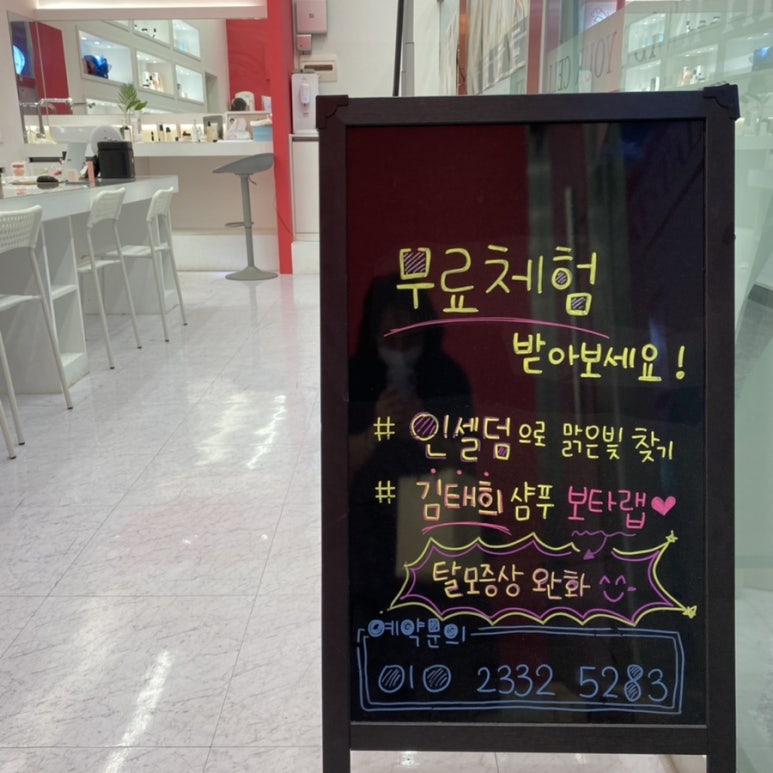 무료체험
받아보세요!
# 인셀덤으로 맑은빛 찾기
# 김태희 샴푸 보타랩♥
탈모증상 완화
예약문의
010 2332 5283